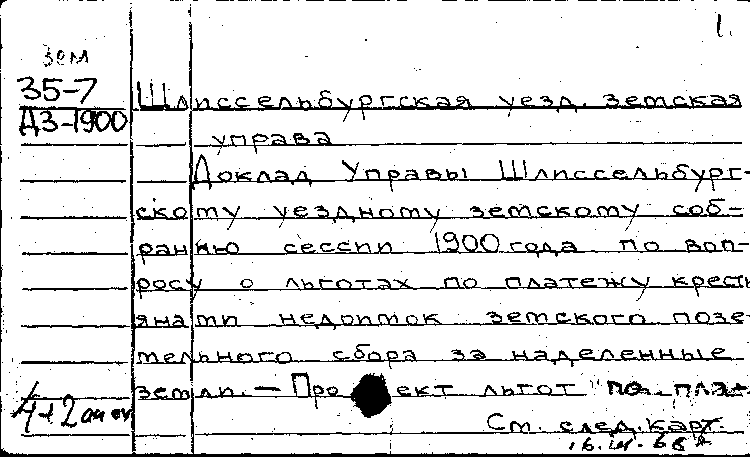 1.
зем
35-7
Д3-1900
Шлиссельбургская уезд. земская
управа
Доклад Управы Шлиссельбург-
скому уездному земскому соб-
ранию сессии 1900 года по воп-
росу о льготах по платежу кресть
янами недоимок земского позе-
мельного сбора за наделенные
земли. — Проект льгот по пла-
4+2
См. след. карт.